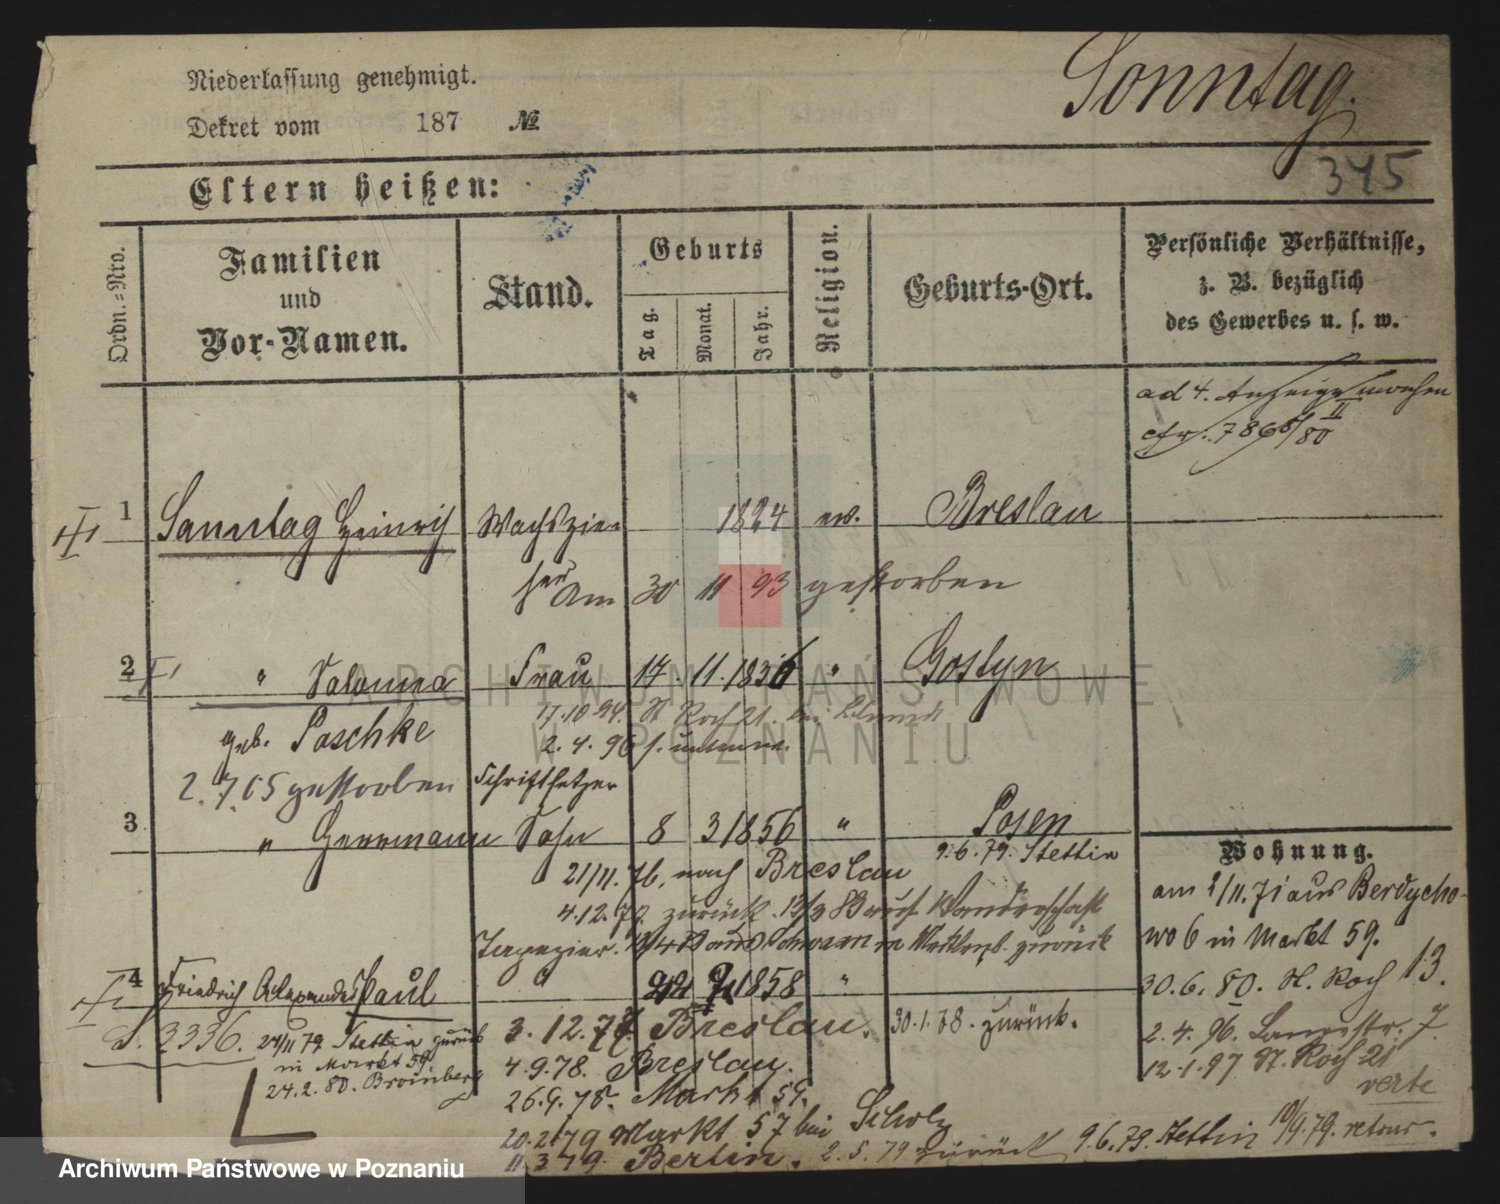 Niederlassung genehmigt.
Sonntag.
Dekret vom 187 №
345
Eltern heißen:
Ordn.-Nro.
Familien und Vor-Namen.
Stand.
Geburts
Tag. Monat. Jahr.
Religion.
Geburts-Ort.
Persönliche Verhältnisse,
z. B. bezüglich
des Gewerbes u. s. w.
ad 4. Anzeige machen
cfr. 7866/80 II
1 Sonntag Heinrich Wachszie- 1824 ev. Breslau
her Am 30 11 93 gestorben
2 " Salomea Frau 14. 11. 1836 " Gostyn
geb. Paschke
17.10 94. St Roch 21. bei
2. 4. 96
2. 7. 05 gestorben Schriftsetzer
3 " Herrmann Sohn 8 3 1856 " Posen
9.6.79. Stettin
21/11. 76. nach Breslau
4.12.77 zurück. 13/3 80 auf Wanderschaft
Tapezier. aus in zurück
4 Friedrich Alexander Paul 1858 "
J. 3336. 24/11 79 Stettin zurück
in Markt 59
24.2.80. Bromberg
3. 12. 77 Breslau. 30.1.78. zurück.
4.9.78. Breslau.
26.9.78. Markt 59.
20.2.79 Markt 57 bei Scholz
11.3 79. Berlin. 2.5.79 zurück 9.6.79. Stettin 10/9.79. retour.
Wohnung.
am 2/11. 71 aus Berdycho-
wo 6 in Markt 59.
30.6.80. St. Roch 13.
2.4.96. Langestr. 7
12.1.97 St. Roch 21
verte
ARCHIWUM PAŃSTWOWE
W POZNANIU
Archiwum Państwowe w Poznaniu